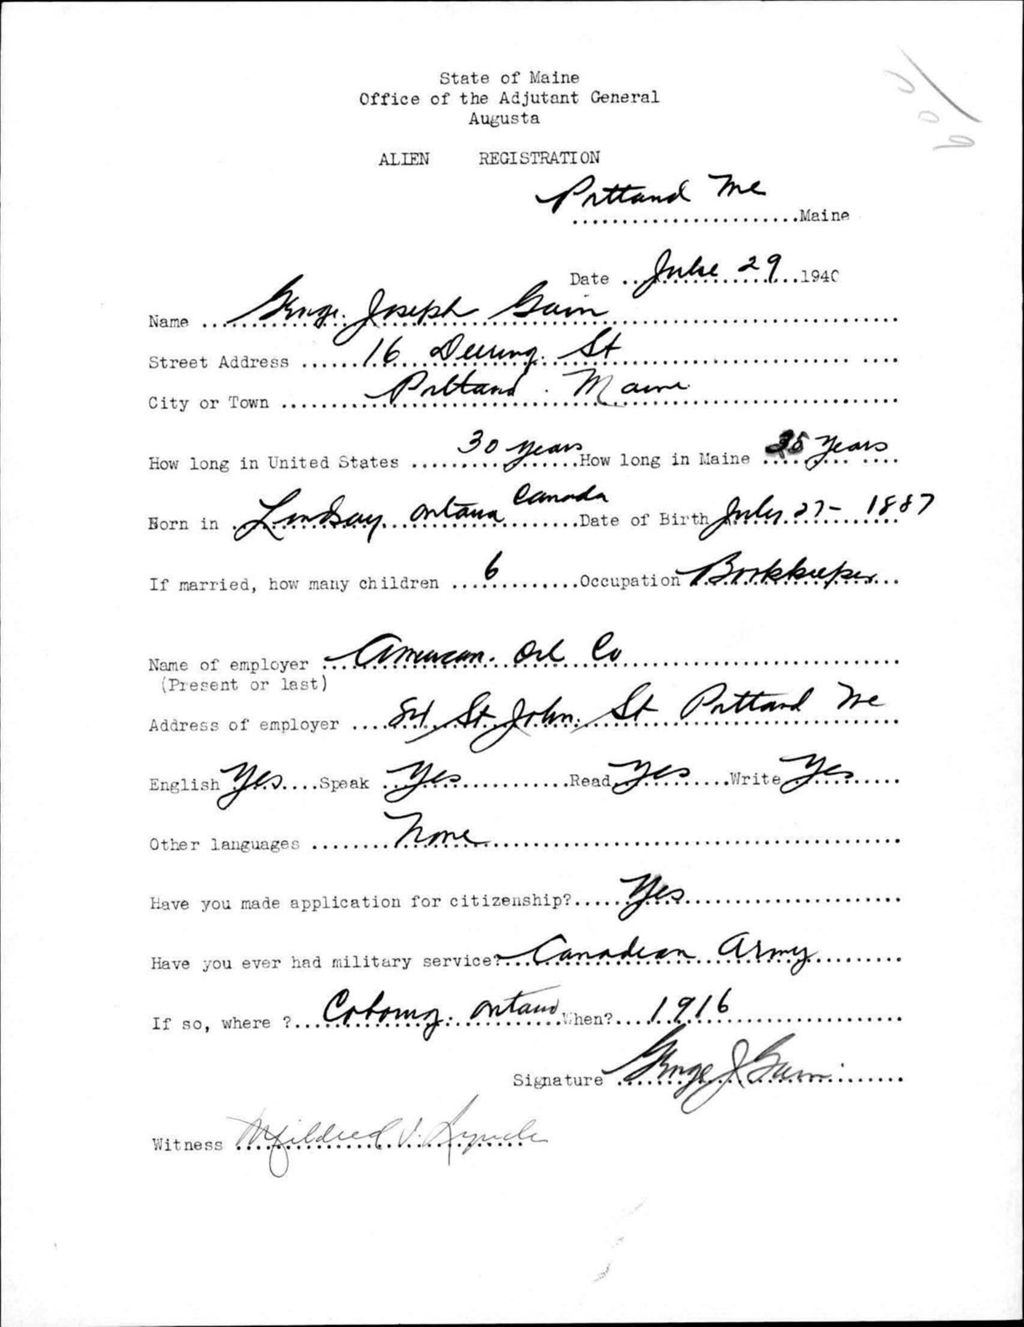 State of Maine
Office of the Adjutant General
Augusta
ALIEN REGISTRATION
Portland Me
.......................Maine
Date ... 29 ...1940
Name ...George Joseph Gain...
Street Address ......16 Deering St...
City or Town ...Portland Maine...
How long in United States ...30 years...How long in Maine ...years...
Born in .Lindsay Ontario Canada...Date of Birth July 27- 1887
If married, how many children ...6...Occupation Bookkeeper...
Name of employer ...American Oil Co...
(Present or last)
Address of employer ...St John St Portland Me
English Yes....Speak ..Yes...Read Yes...Write Yes...
Other languages ........None...
Have you made application for citizenship?.....Yes...
Have you ever had military service?...Canadian Army...
If so, where ?...Cobourg Ontario When?...1916...
Signature ..George J Gain...
Witness Mildred V. Lynch